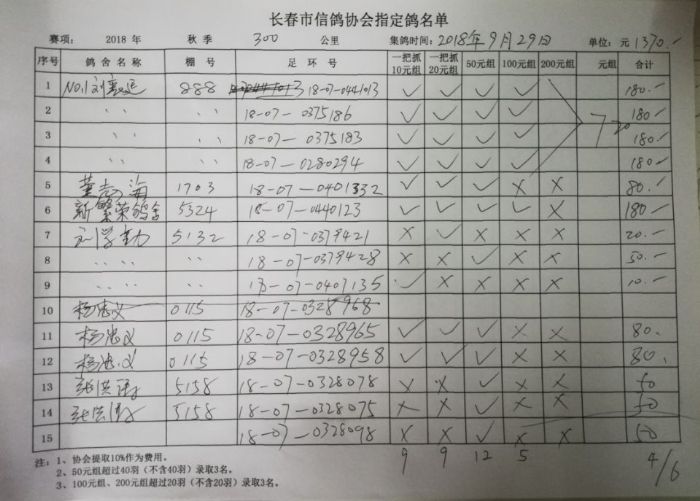 长春市信鸽协会指定鸽名单
赛项： 2018 年 秋 季 300 公里 集鸽时间：2018年9月29日 单位：元 1370.-
序号 鸽 舍 名 称 棚 号 足 环 号 一把抓10元组 一把抓20元组 50元组 100元组 200元组 元组 合计
1 No.1 刘 888 18-07-0441013 ✓ ✓ ✓ ✓ 180.-
2 〃 〃 18-07-0375186 ✓ ✓ ✓ ✓ 720 180.-
3 〃 〃 18-07-0375183 ✓ ✓ ✓ ✓ 180.-
4 〃 〃 18-07-0280294 ✓ ✓ ✓ ✓ 180.-
5 海 1703 18-07-0401332 ✓ ✓ ✓ × × 80.-
6 新繁荣鸽舍 5324 18-07-0440123 ✓ ✓ ✓ ✓ × 180.-
7 刘学勤 5132 18-07-0379421 × ✓ × × × 20.-
8 〃 〃 〃 18-07-0379428 × × ✓ × × 50.-
9 〃 〃 〃 18-07-0407135 ✓ × × × × 10.-
10 杨忠义 0115 18-07-0328958
11 杨忠义 0115 18-07-0328965 ✓ ✓ ✓ × × 80.
12 杨忠义 0115 18-07-0328958 ✓ ✓ ✓ × × 80.
13 张洪 5158 18-07-0328078 × × ✓ × × 50
14 张洪 5158 18-07-0328075 × × ✓ × × 50
15 18-07-0328098 × × ✓ × × 50
9 9 12 5 4/6
注：1、协会提取10%作为费用。
2、50元组超过40羽（不含40羽）录取3名。
3、100元组、200元组超过20羽（不含20羽）录取3名。